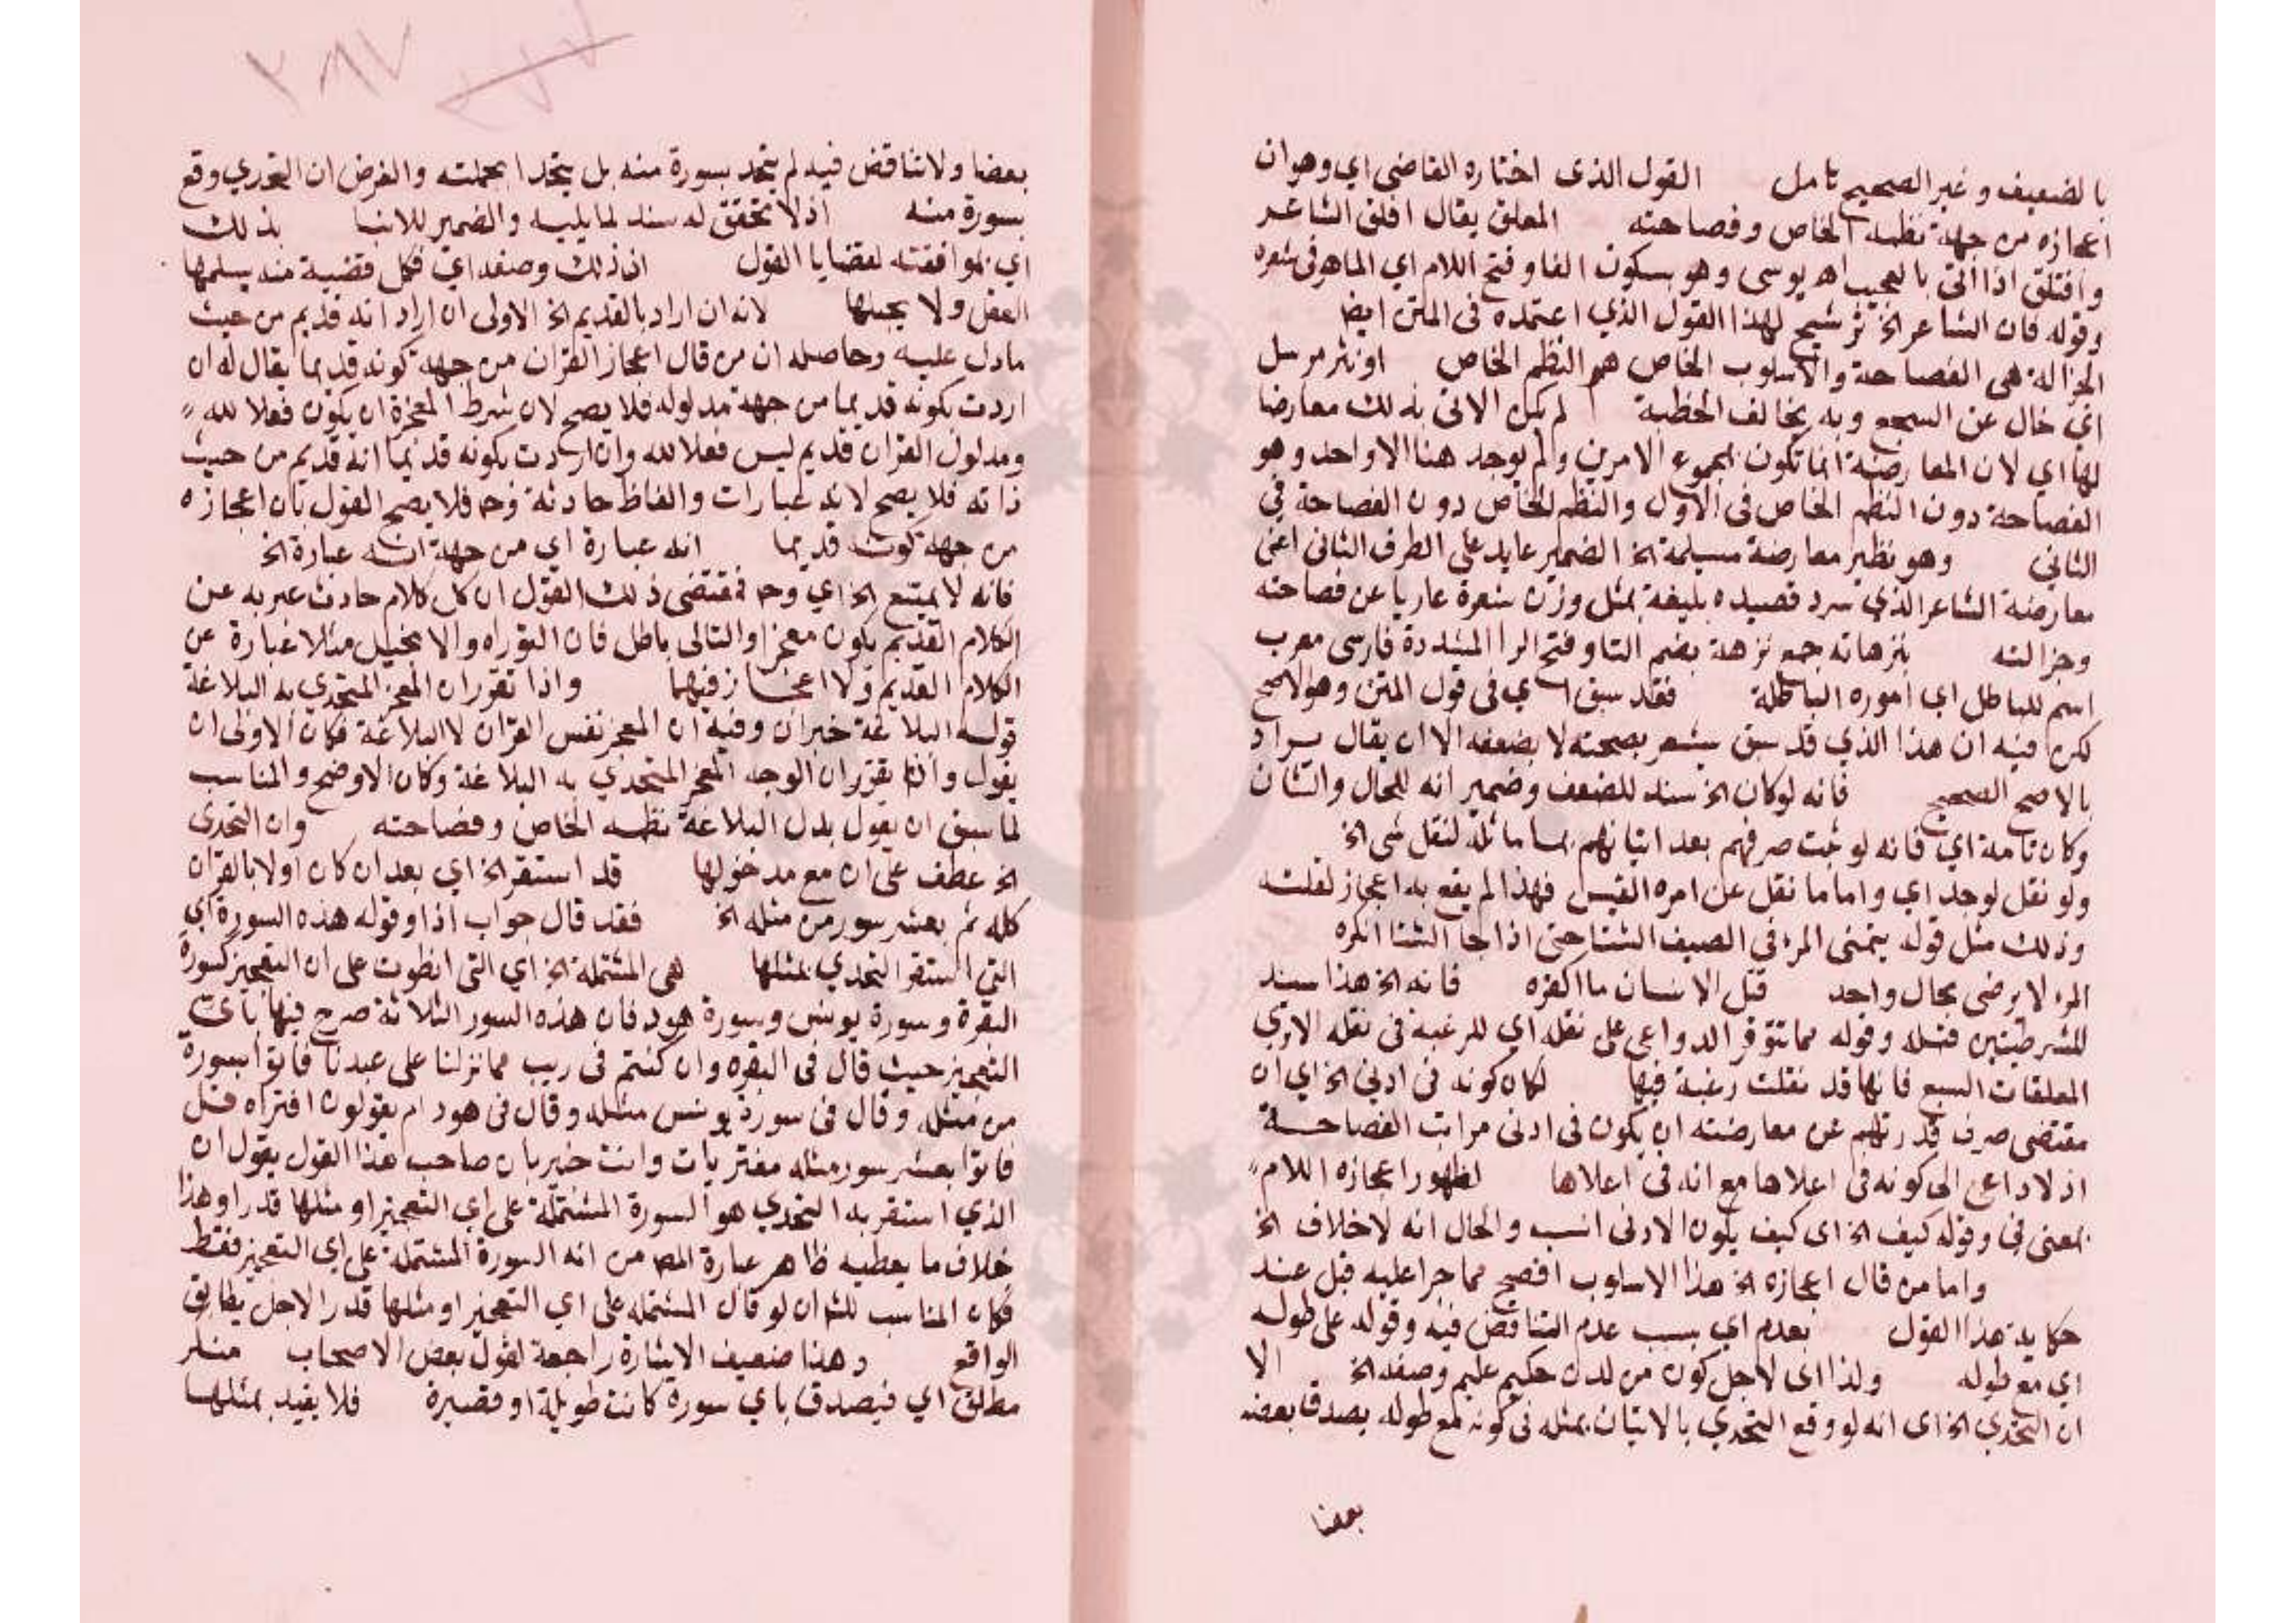 بالضعيف وغير الصحيح تامل القول الذى اختاره القاضى اي وهو ان
اعجازه من جهة نظمه الخاص وفصاحته المفلق يقال افلق الشاعر
وافتلق اذا اتى بالعجيب اه يوسى وهو بسكون الفا وفتح اللام اي الماهر فى شعره
وقوله فان الشاعر الخ ترشيح لهذا القول الذي اعتمده فى المتن ايضا
الجزالة هى الفصاحة والاسلوب الخاص هو النظم الخاص او نثر مرسل
اي خال عن السجع وبه يخالف الخطبة لم يكن الاتى بذلك معارضا
لها اي لان المعارضة انما تكون بمجموع الامرين ولم يوجد هنا الا واحد وهو
الفصاحة دون النظم الخاص فى الاول والنظم الخاص دون الفصاحة في
الثاني وهو نظير معارضة مسيلمة الخ الضمير عايد على الطرف الثانى اعنى
معارضة الشاعر الذي سرد قصيده بليغة بمثل وزن شعره عاريا عن فصاحته
وجزالته بترهاته جمع ترهة بضم التا وفتح الرا المشددة فارسى معرب
اسم للباطل اي اموره الباطلة فقد سبق اي فى قول المتن وهو الاصح
لكن فيه ان هذا الذي قد سبق يشعر بصحته لا بضعفه الا ان يقال يراد
بالاصح الصحيح فانه لو كان الخ سند للضعف وضمير انه للحال والشان
وكان تامة اي فانه لو ثبت صرفهم بعد اتيانهم بما ماثله لنقل شى الخ
ولو نقل لوجد اي واما ما نقل عن امره القيس فهذا لم يقع به اعجاز لقلته
وذلك مثل قوله يتمنى المرء في الصيف الشتا حتى اذا جا الشتا انكره
المرء لا يرضى بحال واحد قتل الانسان ما اكفره فانه الخ هذا سند
للشرطيتين قبله وقوله مما تتوفر الدواعى على نقله اي للرغبة فى نقله الا ترى
المعلقات السبع فانها قد نقلت رغبة فيها لكان كونه فى ادنى الخ اي ان
مقتضى صرف قدرتهم عن معارضته ان يكون فى ادنى مراتب الفصاحة
اذ لا داعى الى كونه فى اعلاها مع انه فى اعلاها لظهور اعجازه اللام
بمعنى في وقوله كيف الخ اى كيف يكون الادنى انسب والحال انه لا خلاف الخ
واما من قال اعجازه الخ هذا الاسلوب افصح مما جرا عليه قبل عند
حكاية هذا القول بعدم اي بسبب عدم التناقض فيه وقوله على طوله
اي مع طوله ولذا اى لاجل كون من لدن حكيم عليم وصفه الخ الا
ان التحدي الخ اى انه لو وقع التحدي بالاتيان بمثله فى كونه مع طوله يصدق بعضه
بعضا
٢٨٧
بعضا ولا تناقض فيه لم يتحد بسورة منه بل يتحدا بجملته والفرض ان التحدي وقع
بسورة منه اذ لا تحقق له سند لما يليه والضمير للانبا بذلك
اي بموافقته لقضايا العقول ان ذلك وصفه اي فكل قضية منه يسلمها
العقل ولا يجهلها لانه ان اراد بالقديم الخ الاولى ان اراد انه قديم من حيث
ما دل عليه وحاصله ان من قال اعجاز القران من جهة كونه قديما يقال له ان
اردت بكونه قديما من جهة مدلوله فلا يصح لان شرط المعجزة ان يكون فعلا لله
ومدلول القران قديم ليس فعلا لله وان اردت بكونه قديما انه قديم من حيث
ذاته فلا يصح لانه عبارات والفاظ حادثة وح فلا يصح القول بان اعجازه
من جهة كونه قديما انه عبارة اي من جهة انه عبارة الخ
فانه لا يمتنع الخ اي وح فمقتضى ذلك القول ان كل كلام حادث عبر به عن
الكلام القديم يكون معجزا والتالى باطل فان التوراه والانجيل مثلا عبارة عن
الكلام القديم ولا اعجاز فيهما واذا تقرر ان المعجز المتحدي به البلاغة
قوله البلاغة خبر ان وفيه ان المعجز نفس القران لا البلاغة فكان الاولى ان
يقول واذا تقرر ان الوجه المعجز المتحدي به البلاغة وكان الاوضح والمناسب
لما سبق ان يقول بدل البلاغة نظمه الخاص وفصاحته وان التحدى
الخ عطف على ان مع مدخولها قد استقر الخ اي بعد ان كان اولا بالقران
كله ثم بعشر سور من مثله الخ فقد قال جواب اذا وقوله هذه السورة اي
التي استقر التحدي بمثلها هى المشتملة الخ اي التى انطوت على ان التعجيز كسورة
البقرة وسورة يونس وسورة هود فان هذه السور الثلاثة صرح فيها باي
التعجيز حيث قال فى البقره وان كنتم فى ريب مما نزلنا على عبدنا فاتوا بسورة
من مثله وقال فى سورة يونس مثله وقال فى هود ام يقولون افتراه قل
فاتوا بعشر سور مثله مفتريات وانت خبير بان صاحب هذا القول يقول ان
الذي استقر به التحدي هو السورة المشتملة على اي التعجيز او مثلها قدرا وهذا
خلاف ما يعطيه ظاهر عبارة المص من انه السورة المشتملة على اي التعجيز فقط
فكان المناسب للش ان لو قال المشتملة على اي التعجيز او مثلها قدرا لاجل يطابق
الواقع وهذا ضعيف الاشارة راجعة لقول بعض الاصحاب
مطلق اي فيصدق باي سورة كانت طويلة او قصيرة فلا يقيد بمثلها